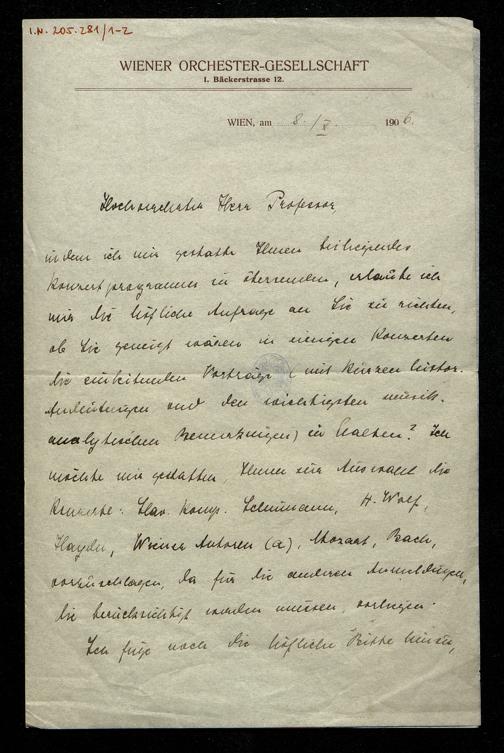 I.N. 205.281/1-2
WIENER ORCHESTER-GESELLSCHAFT
I. Bäckerstrasse 12.
WIEN, am 8./X. 1906.
Hochverehrter Herr Professor
indem ich mir gestatte Ihnen beiliegendes
Konzertprogramm zu übersenden, erlaube ich
mir die höfliche Anfrage an Sie zu richten,
ob Sie geneigt wären in einigen Konzerten
die einleitenden Vorträge (mit kurzen histor.
Andeutungen und den wichtigsten musik.
analytischen Bemerkungen) zu halten? Ich
möchte mir gestatten, Ihnen zur Auswahl die
Konzerte: Slav. Komp. Schumann, H. Wolf,
Haydn, Wiener Autoren (a), Mozart, Bach,
vorzuschlagen, da für die anderen Anmeldungen,
die berücksichtigt werden müssen, vorliegen.
Ich füge noch die höfliche Bitte hinzu,